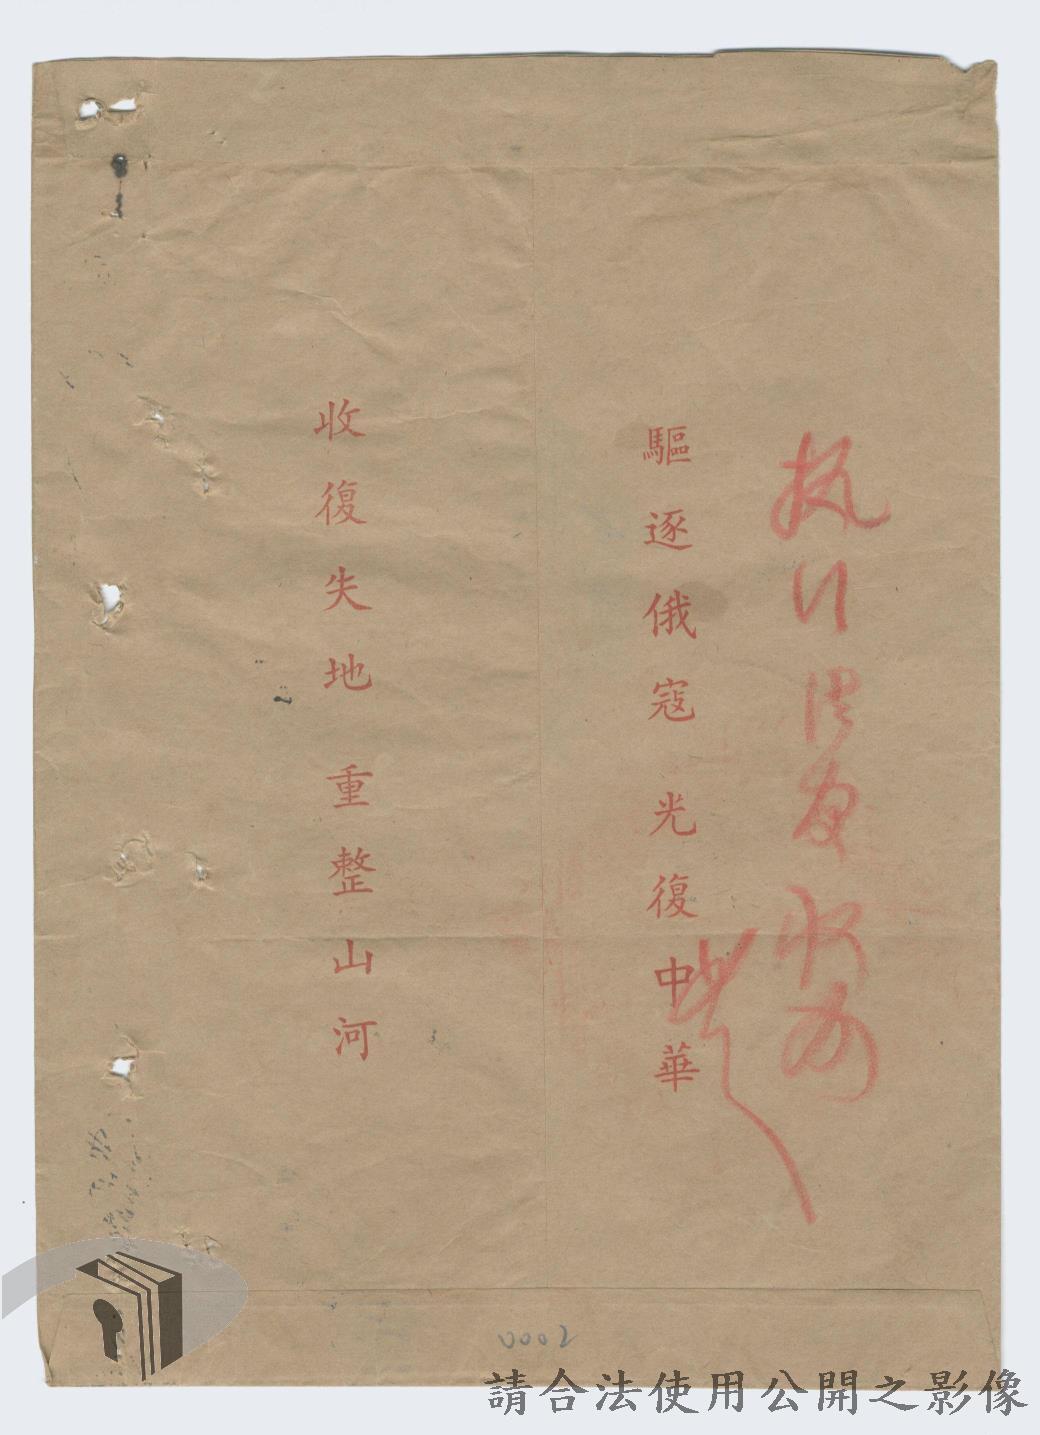 执行後存收
驅逐俄寇光復中華
收復失地重整山河
0002
請合法使用公開之影像